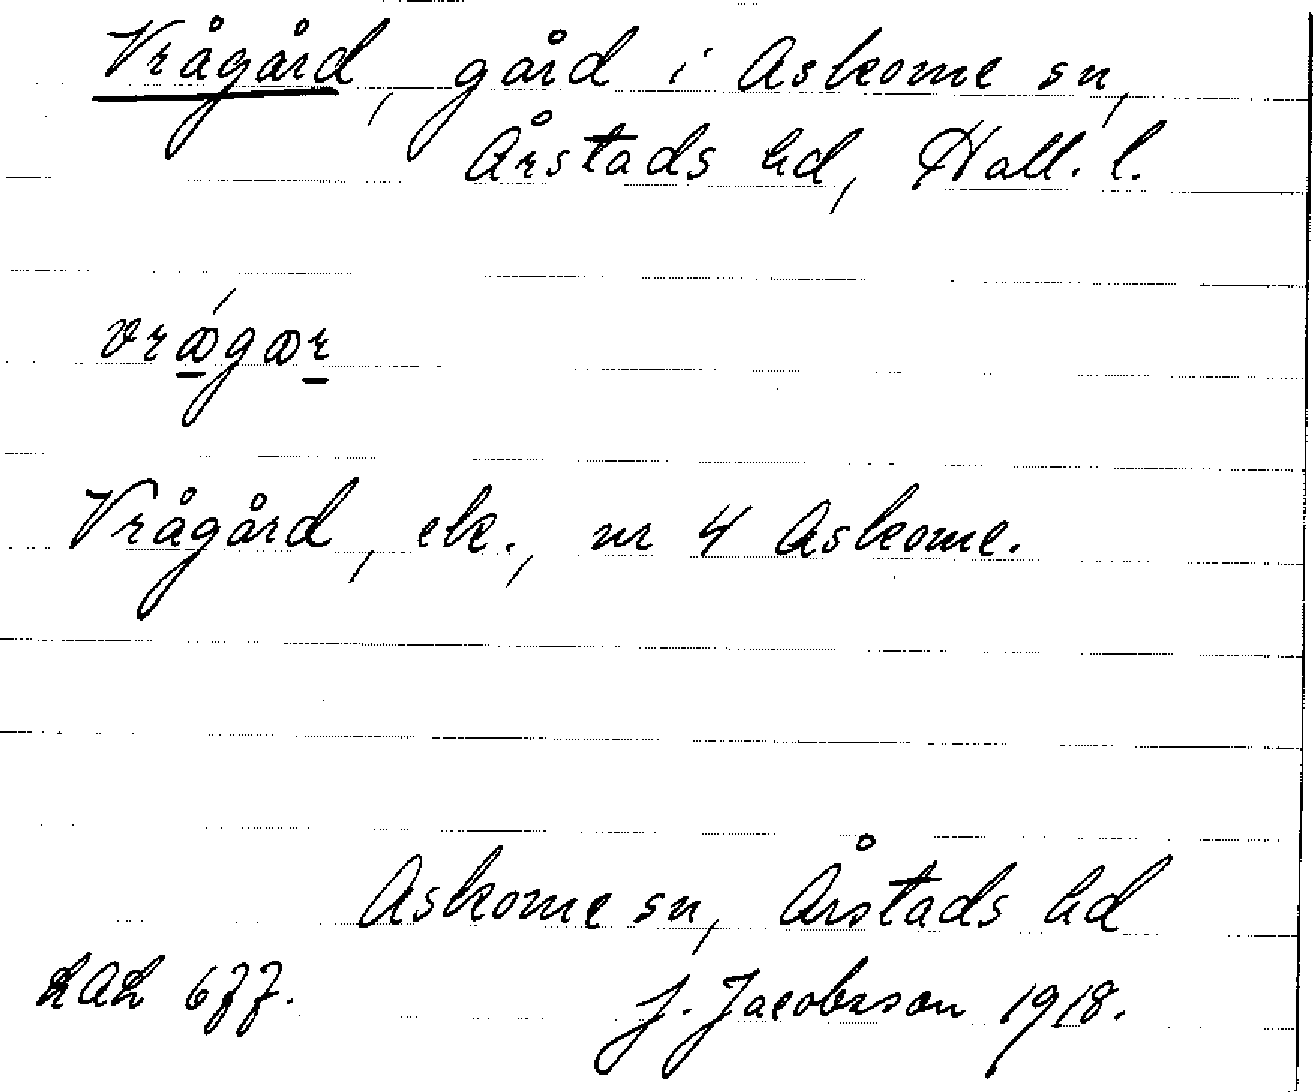 Vrågård, gård i Askome sn,
Årstads hd, Hall. l.
vrågår
Vrågård, ek., nr 4 Askome.
Askome sn, Årstads hd
LAL 677. J. Jacobsson 1918.